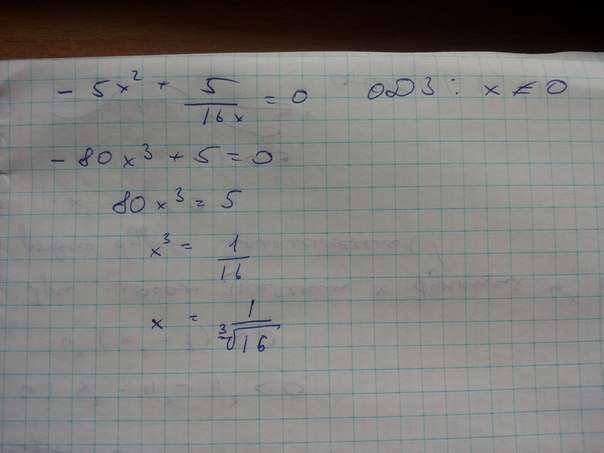 - 5x² + 5/16x = 0 ОДЗ: x ≠ 0
- 80x³ + 5 = 0
80x³ = 5
x³ = 1/16
x = 1/∛16